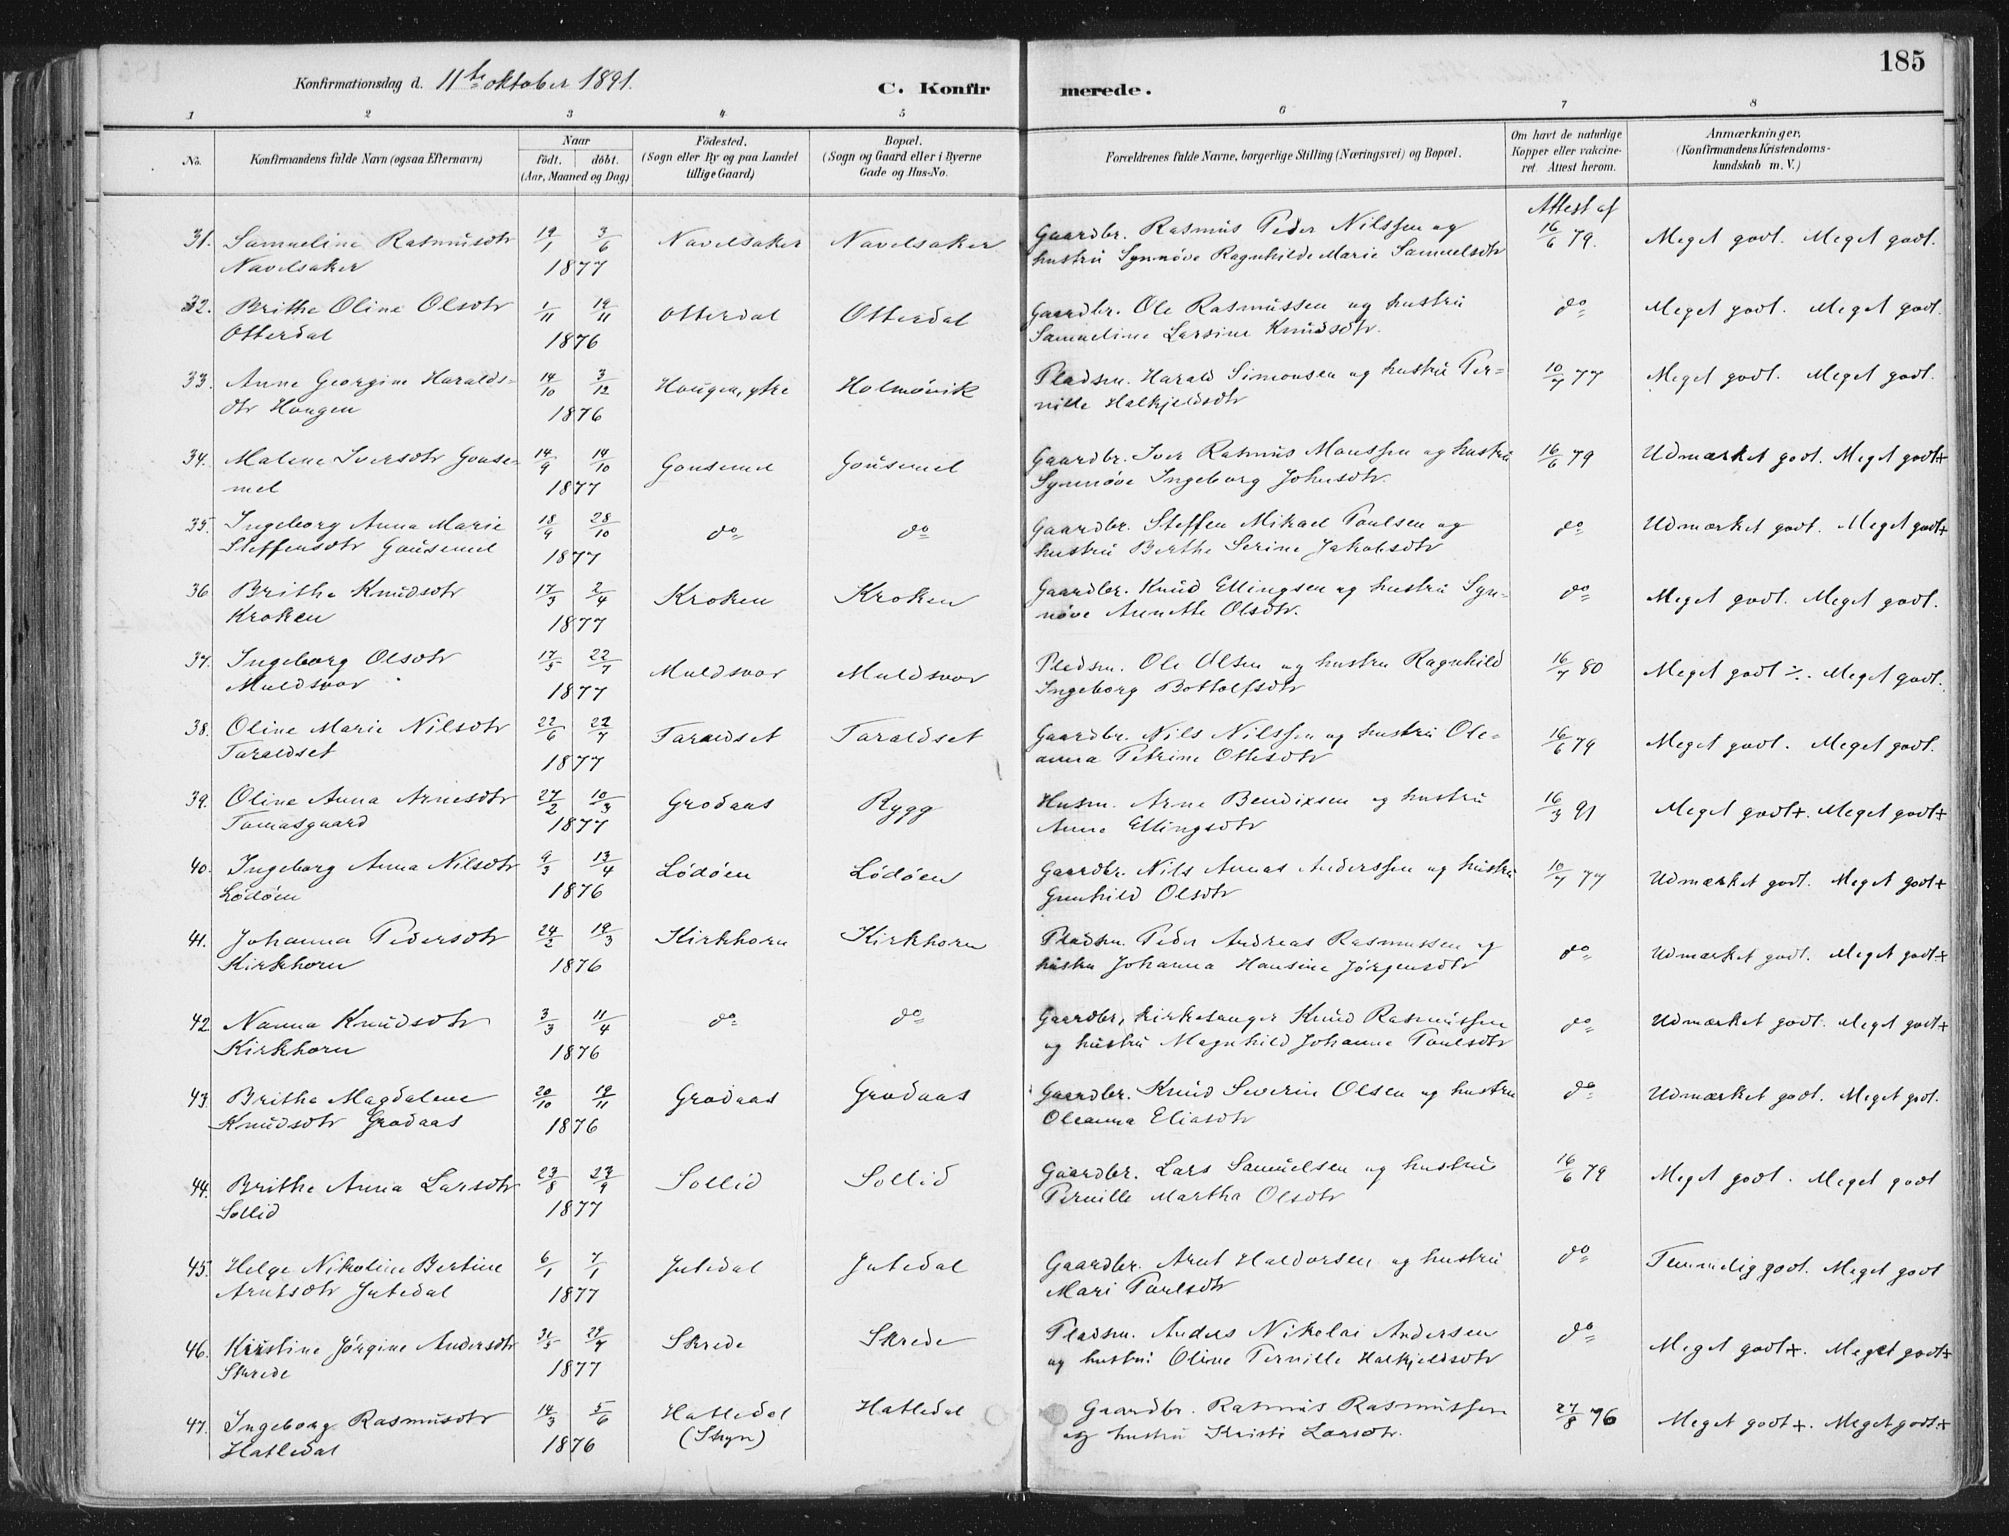 185
Konfirmationsdag d. 11te oktober 1891.
C. Konfirmerede.
1 2 3 4 5 6 7 8
No. Konfirmandens fulde Navn (ogsaa Efternavn) Naar födt. döbt. (Aar, Maaned og Dag) Födested. (Sogn eller By og paa Landet tillige Gaard) Bopæl. (Sogn og Gaard eller i Byerne Gade og Hus-No. Forældrenes fulde Navne, borgerlige Stilling (Næringsvei) og Bopæl. Om havt de naturlige Kopper eller vakcineret. Attest herom. Anmærkninger. (Konfirmandens Kristendomskundskab m. V.)
Attest af
31. Samueline Rasmusdtr 19/1 3/6 Navelsaker Navelsaker Gaardbr. Rasmus Peder Nilssen og 16/6 79. Meget godt. Meget godt.
Navelsaker 1877 hustru Synnöve Ragnhilde Marie Samuelsdtr
32. Brithe Oline Olsdtr 1/11 19/11 Otterdal Otterdal Gaardbr. Ole Rasmussen og hustru do Meget godt. Meget godt.
Otterdal 1876 Samueline Larsine Knudsdtr.
33. Anne Georgine Haralds- 14/10 3/12 Hougen, ytre Holmövik Pladsm. Harald Simonsen og hustru Per- 10/7 77 Meget godt. Meget godt.
dtr Hougen 1876 nille Halkjeldsdtr
34. Malene Iversdtr Gouse- 14/9 14/10 Gousemel Gousemel Gaardbr. Iver Rasmus Monssen og hustru 16/6 79 Udmærket godt. Meget godt+
mel 1877 Synnöve Ingeborg Johnsdtr.
35. Ingeborg Anna Marie 18/9 28/10 do do Gaardbr. Steffen Mikael Poulsen og do Udmærket godt. Meget godt+
Steffensdtr Gousemel 1877 hustru Berthe Serine Jakobsdtr
36 Brithe Knudsdtr 17/3 2/4 Kroken Kroken Gaardbr. Knud Ellingsen og hustru Syn- do Meget godt. Meget godt.
Kroken 1877 növe Annette Olsdtr.
37. Ingeborg Olsdtr 17/5 22/7 Muldsvor Muldsvor Pladsm. Ole Olsen og hustru Ragnhild 16/7 80 Meget godt ÷. Meget godt.
Muldsvor 1877 Ingeborg Bottolfsdtr
38. Oline Marie Nilsdtr 22/6 22/7 Taraldset Taraldset Gaardbr. Nils Nilssen og hustru Ole- 16/6 79 Meget godt. Meget godt.
Taraldset 1877 anna Petrine Ottesdtr
39. Oline Anna Arnesdtr 27/2 10/3 Grodaas Rygg Husm. Arne Bendixsen og hustru 16/3 91 Meget godt+. Meget godt+
Tomasgaard 1877 Anne Ellingsdtr
40. Ingeborg Anna Nilsdtr 9/3 13/4 Lödöen Lödöen Gaardbr. Nils Annas Anderssen og hustru 10/7 77 Udmærket godt. Meget godt+
Lödöen 1876 Gunhild Olsdtr
41. Johanna Pedersdtr 24/2 19/3 Kirkhorn Kirkhorn Pladsm. Peder Andreas Rasmussen og do Udmærket godt. Meget godt+
Kirkhorn 1876 hustru Johanna Hansine Jörgensdtr
42 Nanna Knudsdtr 3/3 11/4 do do Gaardbr, kirkesanger Knud Rasmussen do Udmærket godt. Meget godt+
Kirkhorn 1876 og hustru Magnhild Johanne Poulsdtr
43. Brithe Magdalene 20/10 19/11 Grodaas Grodaas Gaardbr. Knud Severin Olsen og hustru do Udmærket godt. Meget godt.
Knudsdtr Grodaas 1876 Oleanna Eliasdtr
44. Brithe Anna Larsdtr 23/8 27/9 Sollid Sollid Gaardbr. Lars Samuelsen og hustru 16/6 79 Meget godt. Meget godt
Sollid 1877 Pernille Martha Olsdtr
45. Helge Nikoline Bertine 6/1 7/1 Jutedal Jutedal Gaardbr. Arnt Haldorsen og hustru do Temmelig godt. Meget godt
Arntsdtr Jutedal 1877 Mari Paulsdtr
46. Kirstine Jörgine Andersdtr 31/5 29/7 Skrede Skrede Pladsm. Anders Nikolai Andersen do Meget godt+. Meget godt+
Skrede 1877 og hustru Oline Pernille Halkjeldsdtr
47. Ingeborg Rasmusdtr 14/3 5/6 Hatledal Hatledal Gaardbr. Rasmus Rasmussen 27/8 76 Meget godt+. Meget godt.+
Hatledal 1876 (Stryn) og hustru Kristi Larsdtr.